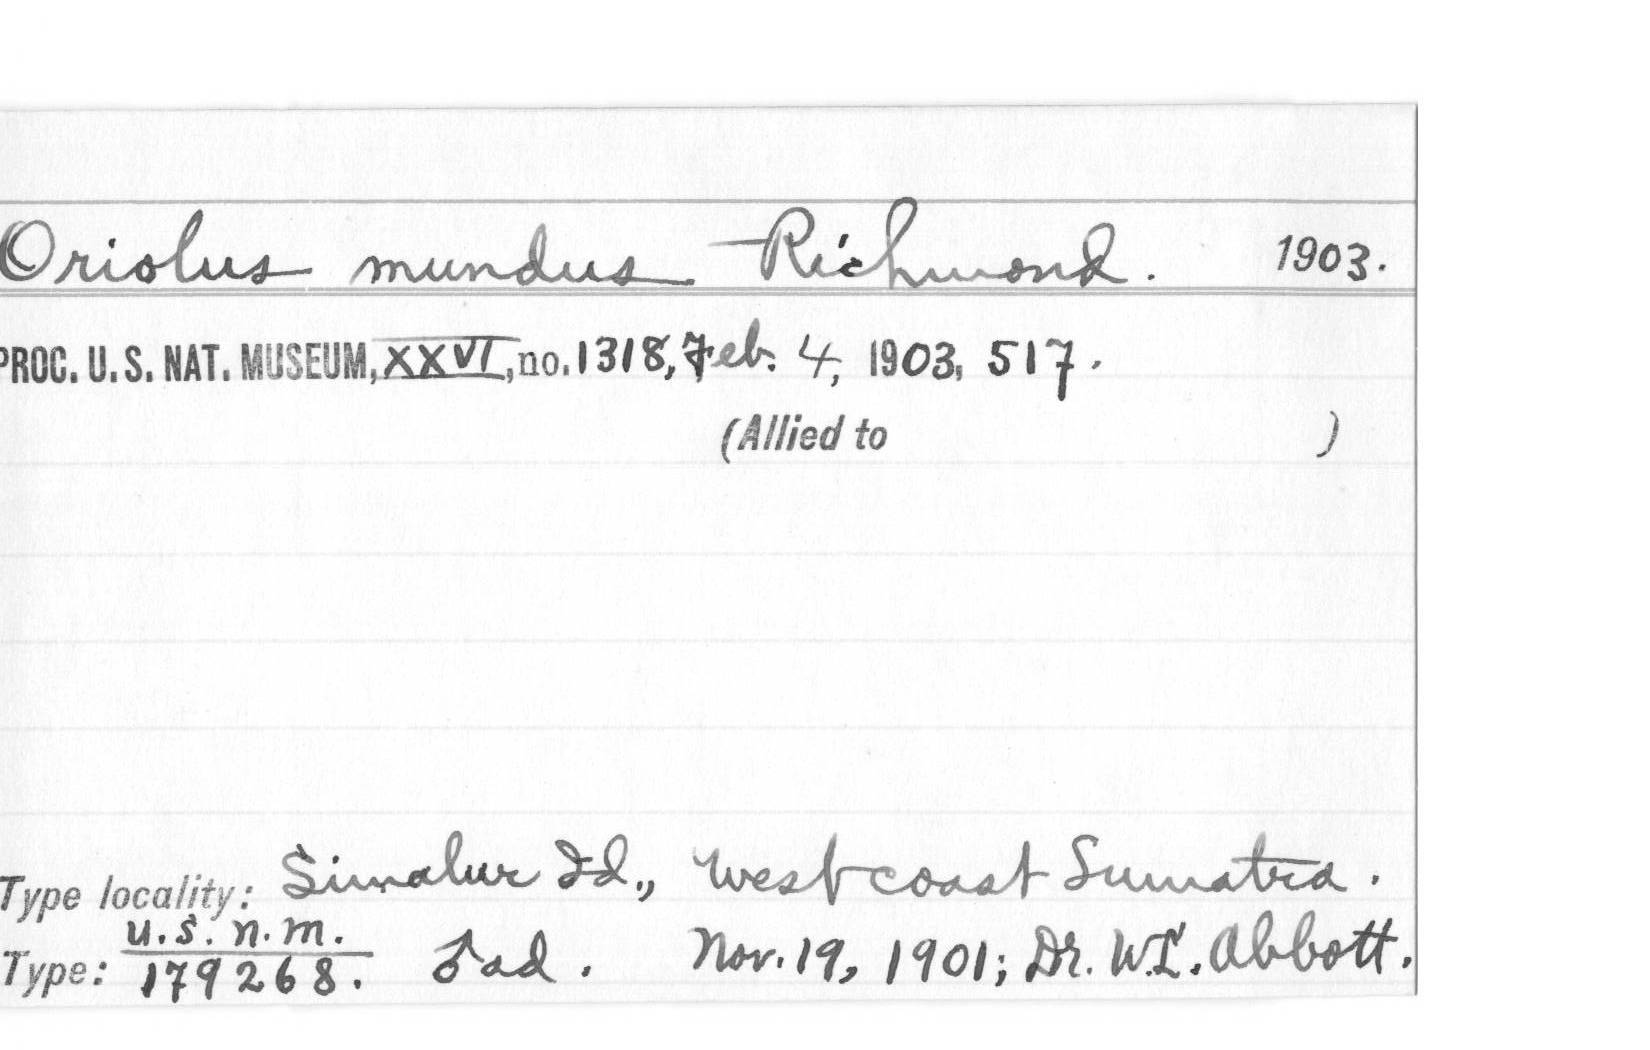 Oriolus mundus Richmond. 1903.
PROC. U.S. NAT. MUSEUM, XXVI, no. 1318, Feb. 4, 1903, 517.
(Allied to )
Type locality: Simalur Id., west coast Sumatra.
U.S.N.M.
Type: 179268. ♂ ad. Nov. 19, 1901; Dr. W.L. Abbott.